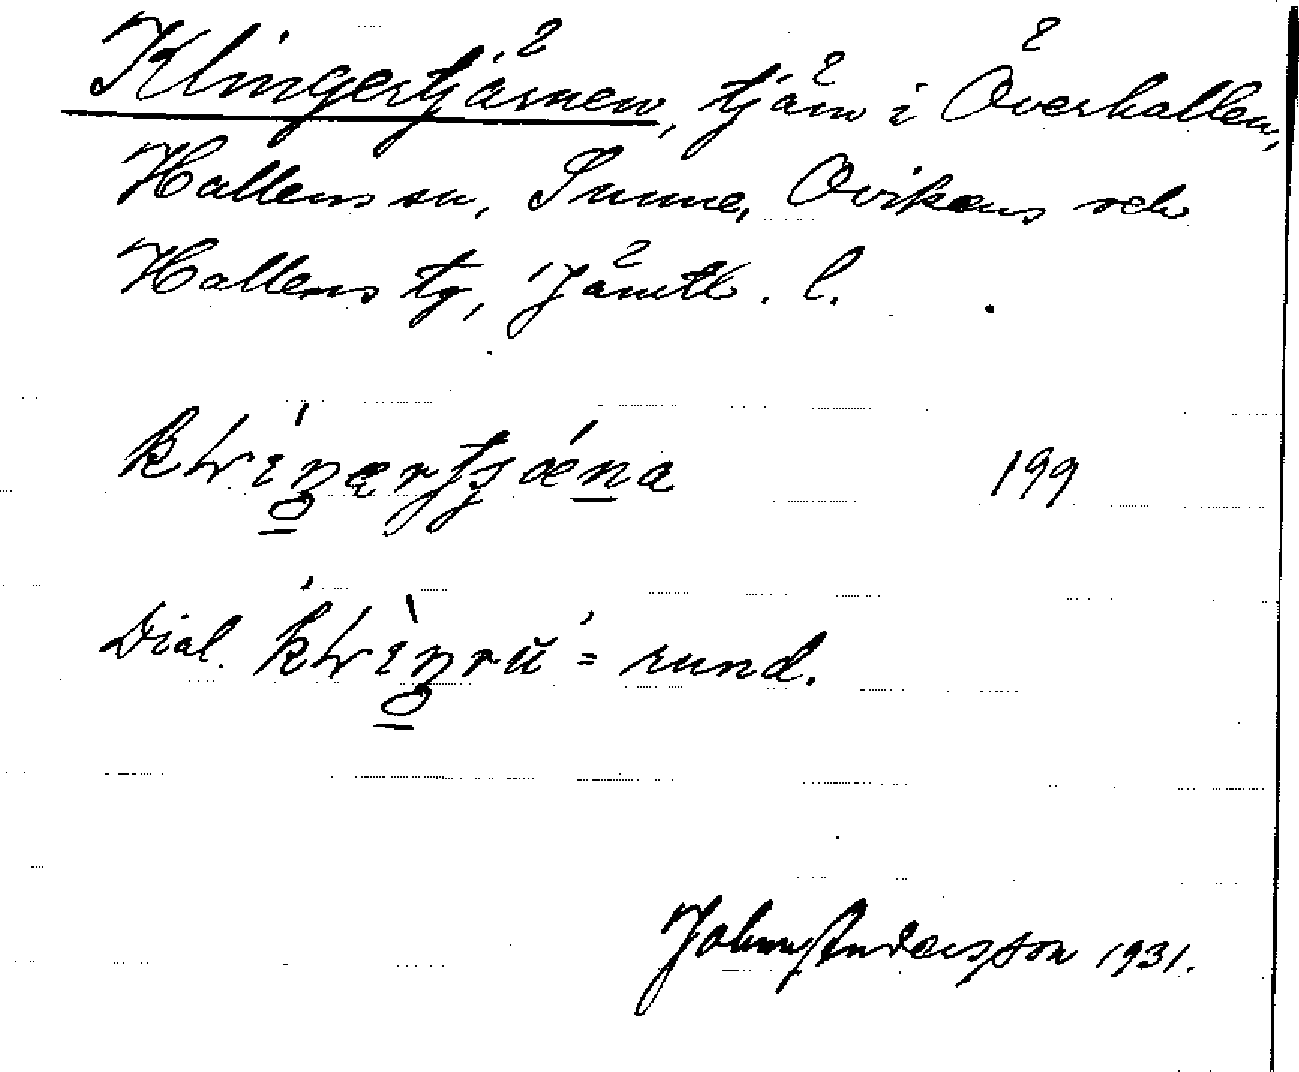 Klingertjärnen, tjärn i Överhallen,
Hallens sn, Sunne, Ovikens och
Hallens tg, Jämtl. l.
199
Dial. = rund.
Johnny Andersson 1931.